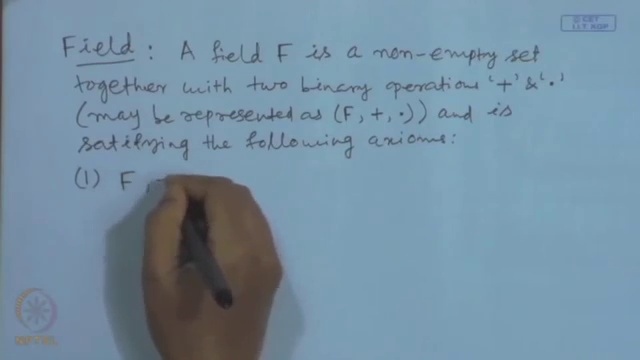 © CET
I.I.T. KGP
Field : A field F is a non-empty set
together with two binary operations '+' & '.'
(may be represented as (F, +, .)) and is
satifying the following axioms:
(1) F
NPTEL